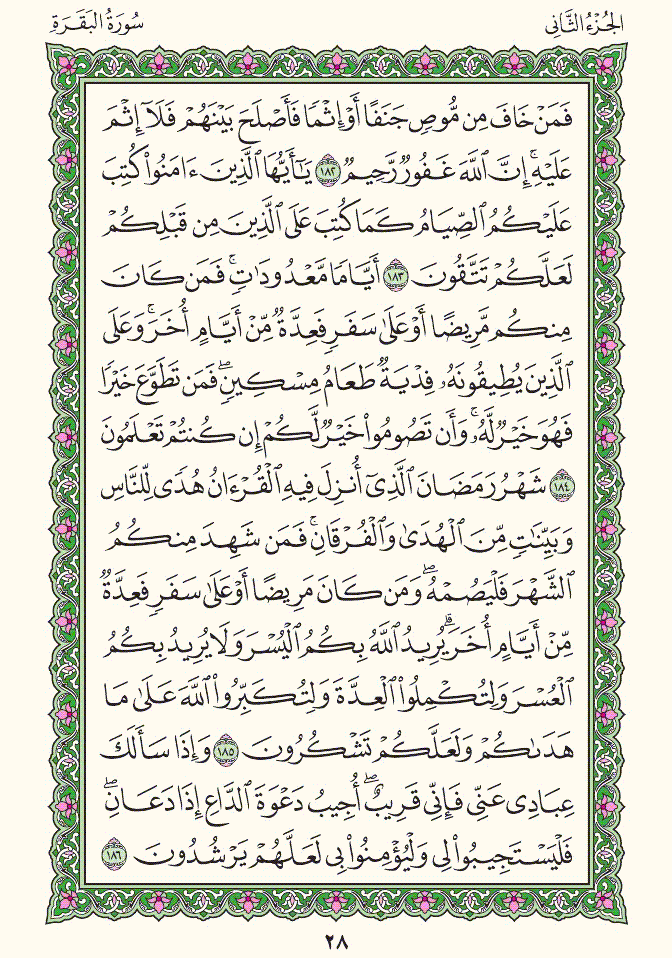 الجُزْءُ الثَّانِي
سُورَةُ البَقَرَةِ
فَمَنْ خَافَ مِن مُّوصٍ جَنَفًا أَوْ إِثْمًا فَأَصْلَحَ بَيْنَهُمْ فَلَآ إِثْمَ
عَلَيْهِ ۚ إِنَّ ٱللَّهَ غَفُورٌ رَّحِيمٌ ١٨٢ يَـٰٓأَيُّهَا ٱلَّذِينَ ءَامَنُوا۟ كُتِبَ
عَلَيْكُمُ ٱلصِّيَامُ كَمَا كُتِبَ عَلَى ٱلَّذِينَ مِن قَبْلِكُمْ
لَعَلَّكُمْ تَتَّقُونَ ١٨٣ أَيَّامًا مَّعْدُودَٰتٍ ۚ فَمَن كَانَ
مِنكُم مَّرِيضًا أَوْ عَلَىٰ سَفَرٍ فَعِدَّةٌ مِّنْ أَيَّامٍ أُخَرَ ۚ وَعَلَى
ٱلَّذِينَ يُطِيقُونَهُۥ فِدْيَةٌ طَعَامُ مِسْكِينٍ ۖ فَمَن تَطَوَّعَ خَيْرًا
فَهُوَ خَيْرٌ لَّهُۥ ۚ وَأَن تَصُومُوا۟ خَيْرٌ لَّكُمْ إِن كُنتُمْ تَعْلَمُونَ
١٨٤ شَهْرُ رَمَضَانَ ٱلَّذِىٓ أُنزِلَ فِيهِ ٱلْقُرْءَانُ هُدًى لِّلنَّاسِ
وَبَيِّنَـٰتٍ مِّنَ ٱلْهُدَىٰ وَٱلْفُرْقَانِ ۚ فَمَن شَهِدَ مِنكُمُ
ٱلشَّهْرَ فَلْيَصُمْهُ ۖ وَمَن كَانَ مَرِيضًا أَوْ عَلَىٰ سَفَرٍ فَعِدَّةٌ
مِّنْ أَيَّامٍ أُخَرَ ۗ يُرِيدُ ٱللَّهُ بِكُمُ ٱلْيُسْرَ وَلَا يُرِيدُ بِكُمُ
ٱلْعُسْرَ وَلِتُكْمِلُوا۟ ٱلْعِدَّةَ وَلِتُكَبِّرُوا۟ ٱللَّهَ عَلَىٰ مَا
هَدَىٰكُمْ وَلَعَلَّكُمْ تَشْكُرُونَ ١٨٥ وَإِذَا سَأَلَكَ
عِبَادِى عَنِّى فَإِنِّى قَرِيبٌ ۖ أُجِيبُ دَعْوَةَ ٱلدَّاعِ إِذَا دَعَانِ ۖ
فَلْيَسْتَجِيبُوا۟ لِى وَلْيُؤْمِنُوا۟ بِى لَعَلَّهُمْ يَرْشُدُونَ ١٨٦
٢٨